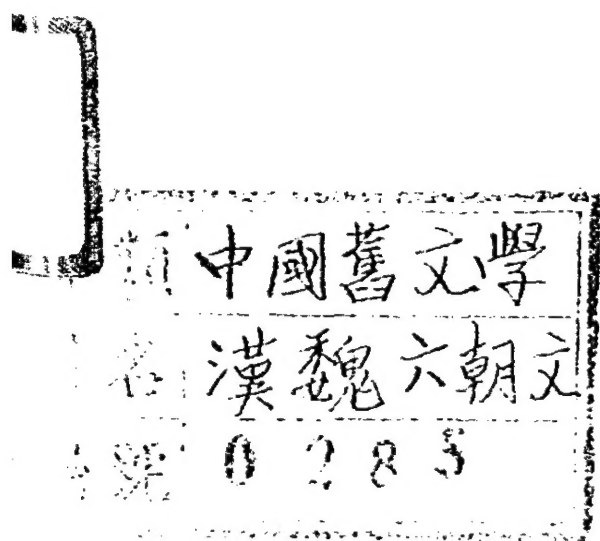 類 中國舊文學
名 漢魏六朝文
號 0285